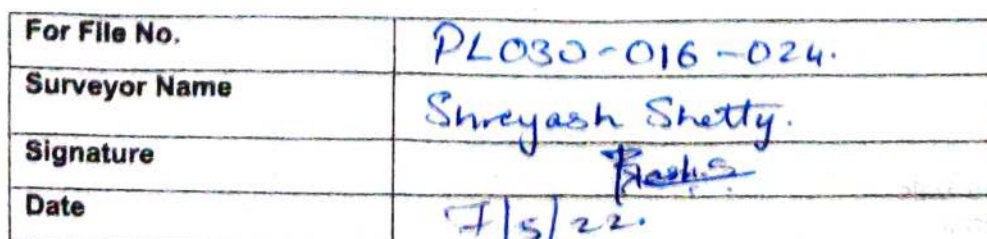 For File No. PL030-016-024.
Surveyor Name Shreyash Shetty.
Signature
Date 7/5/22.